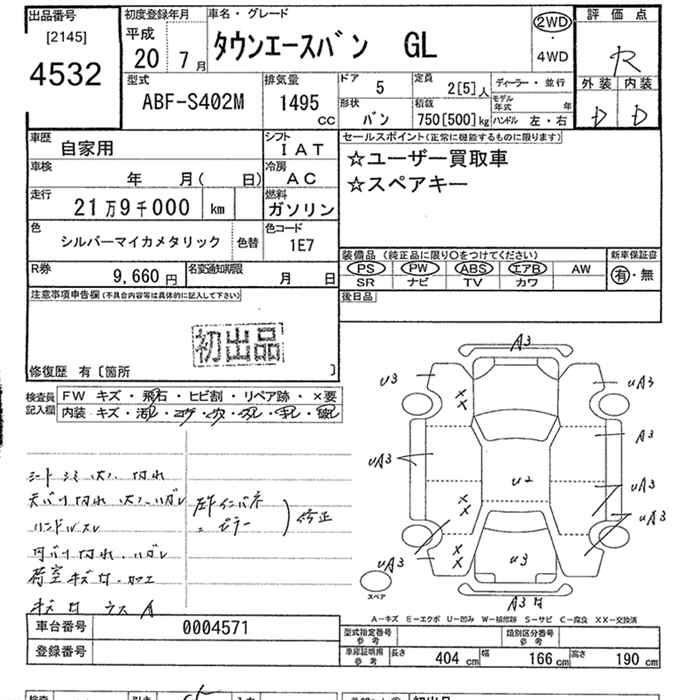 出品番号
[2145]
4532
初度登録年月
平成
20 7月
車名・グレード
タウンエースバン GL
2WD
・
4WD
評価点
R
外装 内装
D D
型式
ABF-S402M
排気量
1495
CC
ドア
5
定員
2[5]人
ディーラー・並行
形状
バン
積載
750[500]kg
モデル年式 年
ハンドル 左・右
車歴
自家用
シフト
IAT
車検
年 月( 日)
冷房
AC
走行
21万9千000 km
燃料
ガソリン
色
シルバーマイカメタリック
色替
色コード
1E7
R券
9,660円
名変通知期限
月 日
セールスポイント(正常に機能するものに限ります)
☆ユーザー買取車
☆スペアキー
装備品(純正品に限り○をつけてください)
PS PW ABS エアB AW
SR ナビ TV カワ
新車保証書
有・無
後日品
注意事項申告欄(不具合内容等は具体的に記入して下さい)
初出品
修復歴 有〔箇所 〕
検査員記入欄
FW キズ・飛石・ヒビ割・リペア跡・×要
内装 キズ・汚れ・コゲ・穴・スレ・キレ・破れ
シート シミ 穴 切れ
ハンドルスレ
修正
A3
U3
uA3
A3
uA3
uA3
uA3
uA3
u2
u3
A3
×
×
×
×
×
×
スペア
A-キズ E-エクボ U-凹み W-補修跡 S-サビ C-腐食 XX-交換済
車台番号
0004571
登録番号
型式指定番号
参考
類別区分番号
参考
車庫証明用
参考
長さ 404 cm
幅 166 cm
高さ 190 cm